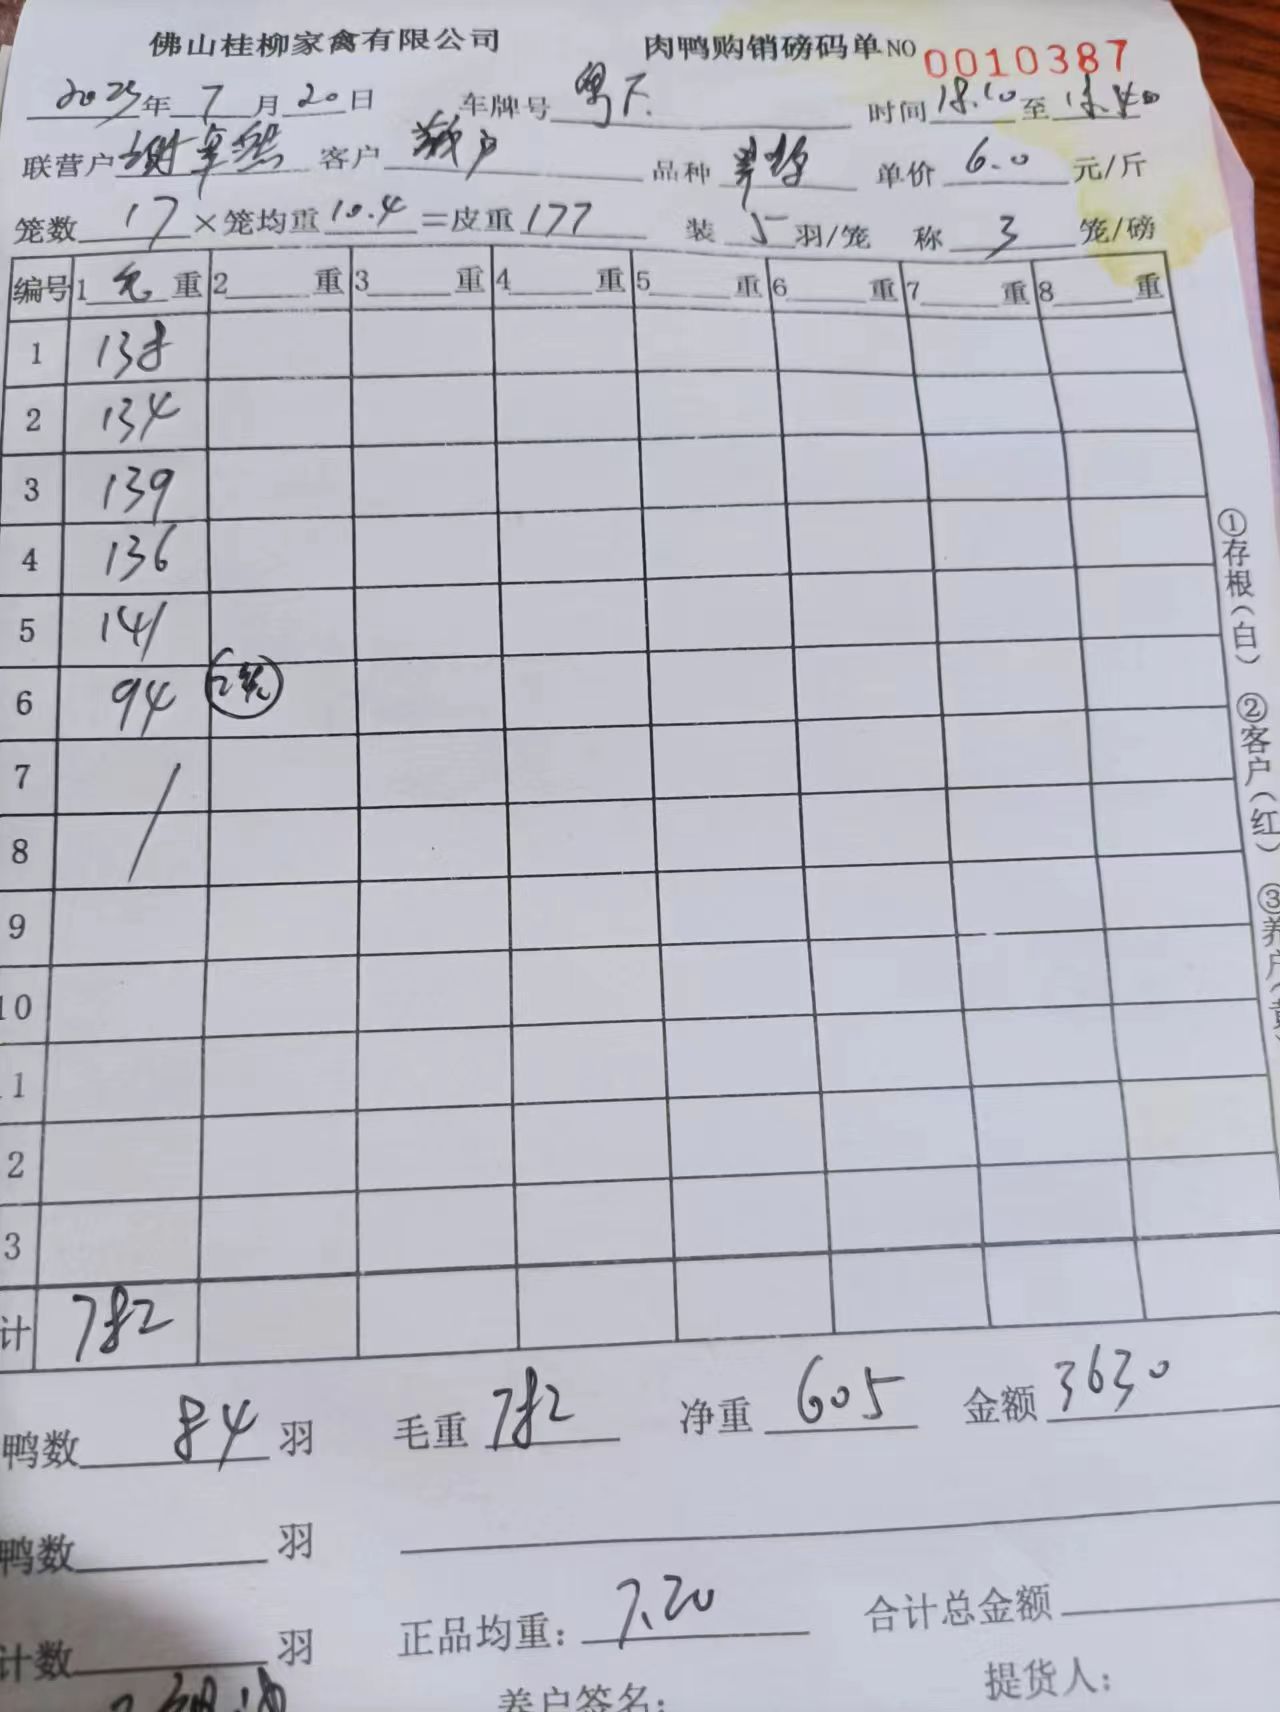 佛山桂柳家禽有限公司 肉鸭购销磅码单 NO 0010387
2025年 7月 20日 车牌号 粤 时间 18.10 至
联营户 谢卓熙 客户 散户 品种 单价 6.0 元/斤
笼数 17 ×笼均重 10.4 =皮重 177 装 5 羽/笼 称 3 笼/磅
编号 1 毛 重 2 重 3 重 4 重 5 重 6 重 7 重 8 重
1 138
2 134
3 139
4 136
5 141
6 94 2笼
7
8
9
10
1
2
3
计 782
鸭数 84 羽 毛重 782 净重 605 金额 3630
鸭数 羽
计数 羽 正品均重： 7.20 合计总金额
养户签名： 提货人：
①存根（白） ②客户（红） ③养户（黄）